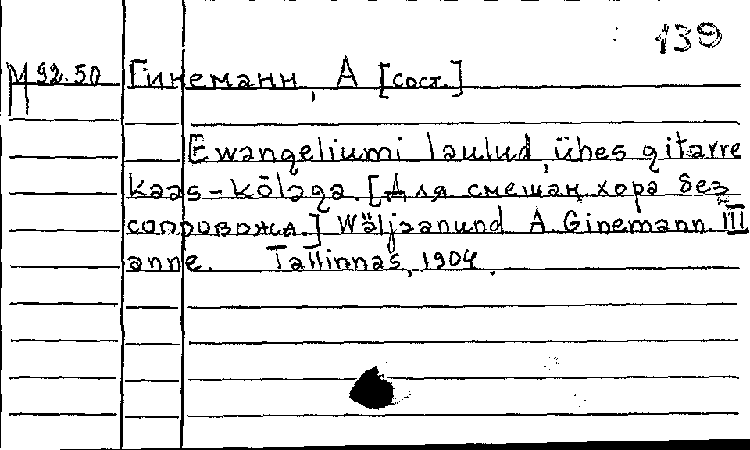 139
М 92.50 Гинеманн, А [сост.]
Ewangeliumi laulud, ühes gitarre
kaas-kõlaga. [Для смешан. хора без
сопровожд.] Wäljaanund A. Ginemann. III
anne. Tallinnas, 1904.